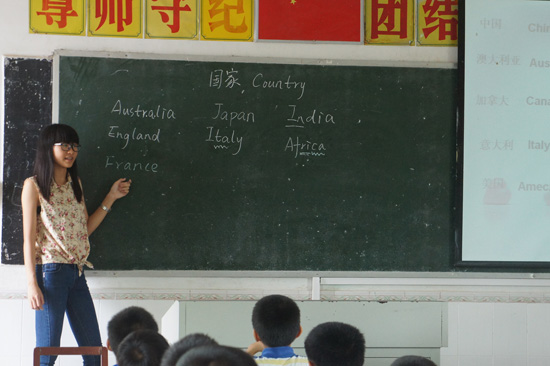 尊师守纪 团结
国家 Country
Australia Japan India
England Italy Africa
France
中国 Chin
澳大利亚 Aus
加拿大 Cana
意大利 Italy
Amec